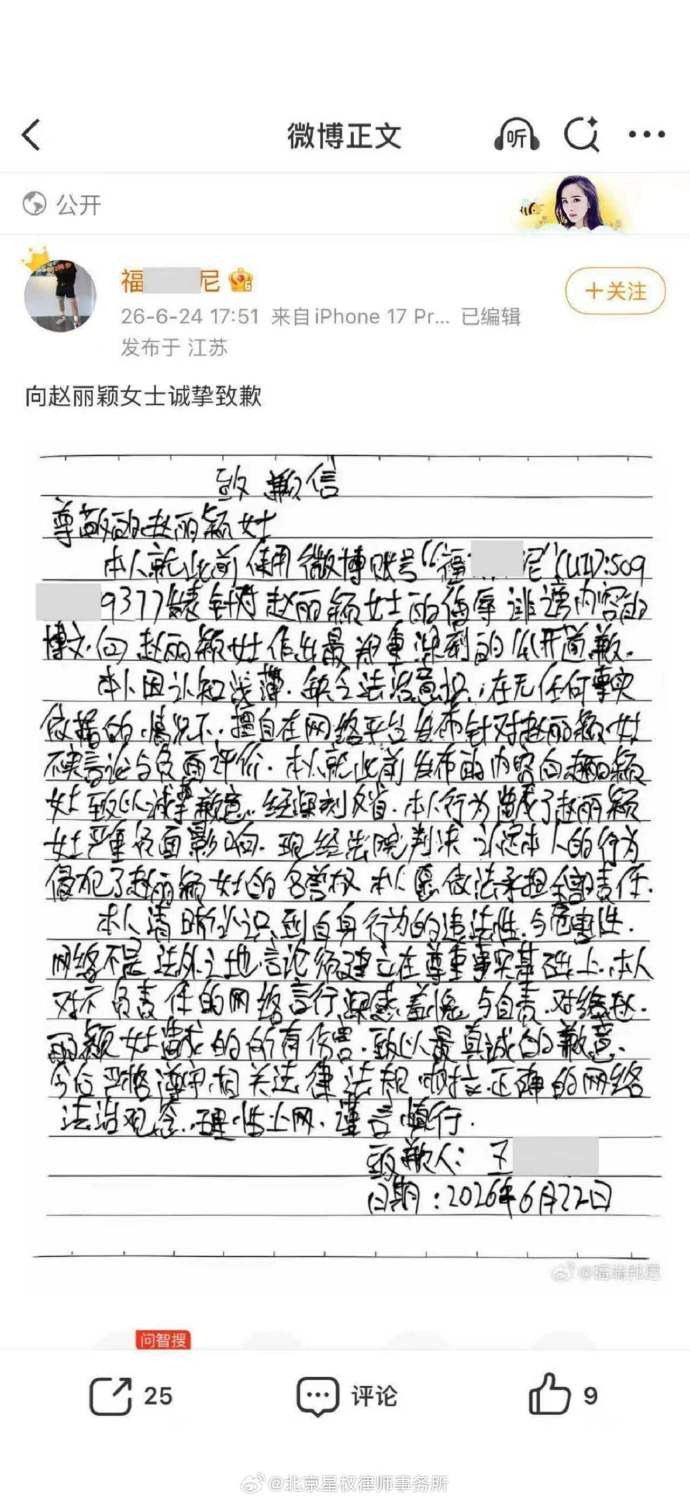 微博正文
听
公开
福 尼
+关注
26-6-24 17:51 来自iPhone 17 Pr... 已编辑
发布于 江苏
向赵丽颖女士诚挚致歉
致歉信
尊敬的赵丽颖女士
本人就此前使用微博账号“福 尼”(UID:509
9377)发表针对赵丽颖女士的侮辱诽谤内容的
博文.向赵丽颖女士作出最郑重深刻的公开道歉.
本人因认知浅薄.缺乏法治意识,在无任何事实
依据的情况下.擅自在网络平台发布针对赵丽颖女士
不实言论与负面评价.本人就此前发布的内容向赵丽颖
女士致以诚挚歉意.经深刻反省.本人行为造成了赵丽颖
女士严重负面影响.现经法院判决.认定本人的行为
侵犯了赵丽颖女士的名誉权 本人愿依法承担全部责任.
本人清晰认识到自身行为的违法性.与危害性.
网络不是法外之地言论须建立在尊重事实基础上.本人
对不负责任的网络言行深感羞愧与自责.对给赵.
丽颖女士造成的所有伤害.致以最真诚的歉意.
今后严格遵守相关法律法规 正确的网络
法治观念.理性上网.谨言慎行.
致歉人:王
日期:2026年6月22日
@福 尼
问智搜
25 评论 9
@北京星权律师事务所